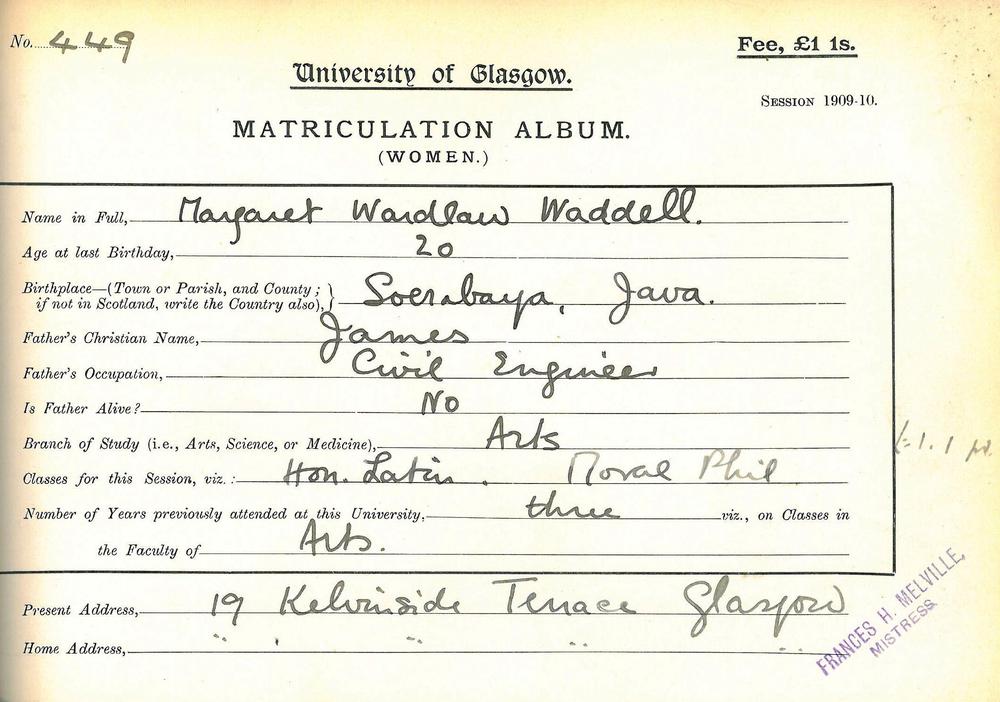 No. 449
Fee, £1 1s.
University of Glasgow.
SESSION 1909-10.
MATRICULATION ALBUM.
(WOMEN.)
Name in Full, Margaret Wardlaw Waddell.
Age at last Birthday, 20
Birthplace—(Town or Parish, and County;
if not in Scotland, write the Country also), } Soerabaya, Java.
Father's Christian Name, James
Father's Occupation, Civil Engineer
Is Father Alive? No
Branch of Study (i.e., Arts, Science, or Medicine), Arts
£1. 1
Classes for this Session, viz.: Hon. Latin. Moral Phil
Number of Years previously attended at this University, three viz., on Classes in
the Faculty of Arts.
Present Address, 19 Kelvinside Terrace Glasgow
Home Address, " " " " "
FRANCES H. MELVILLE,
MISTRESS